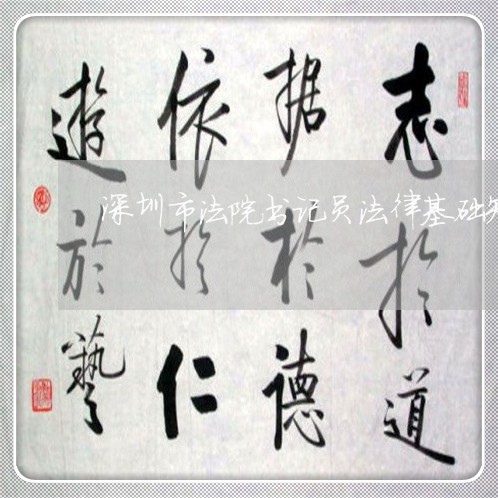 志於道
据於德
依於仁
遊於藝
深圳市法院书记员法律基础